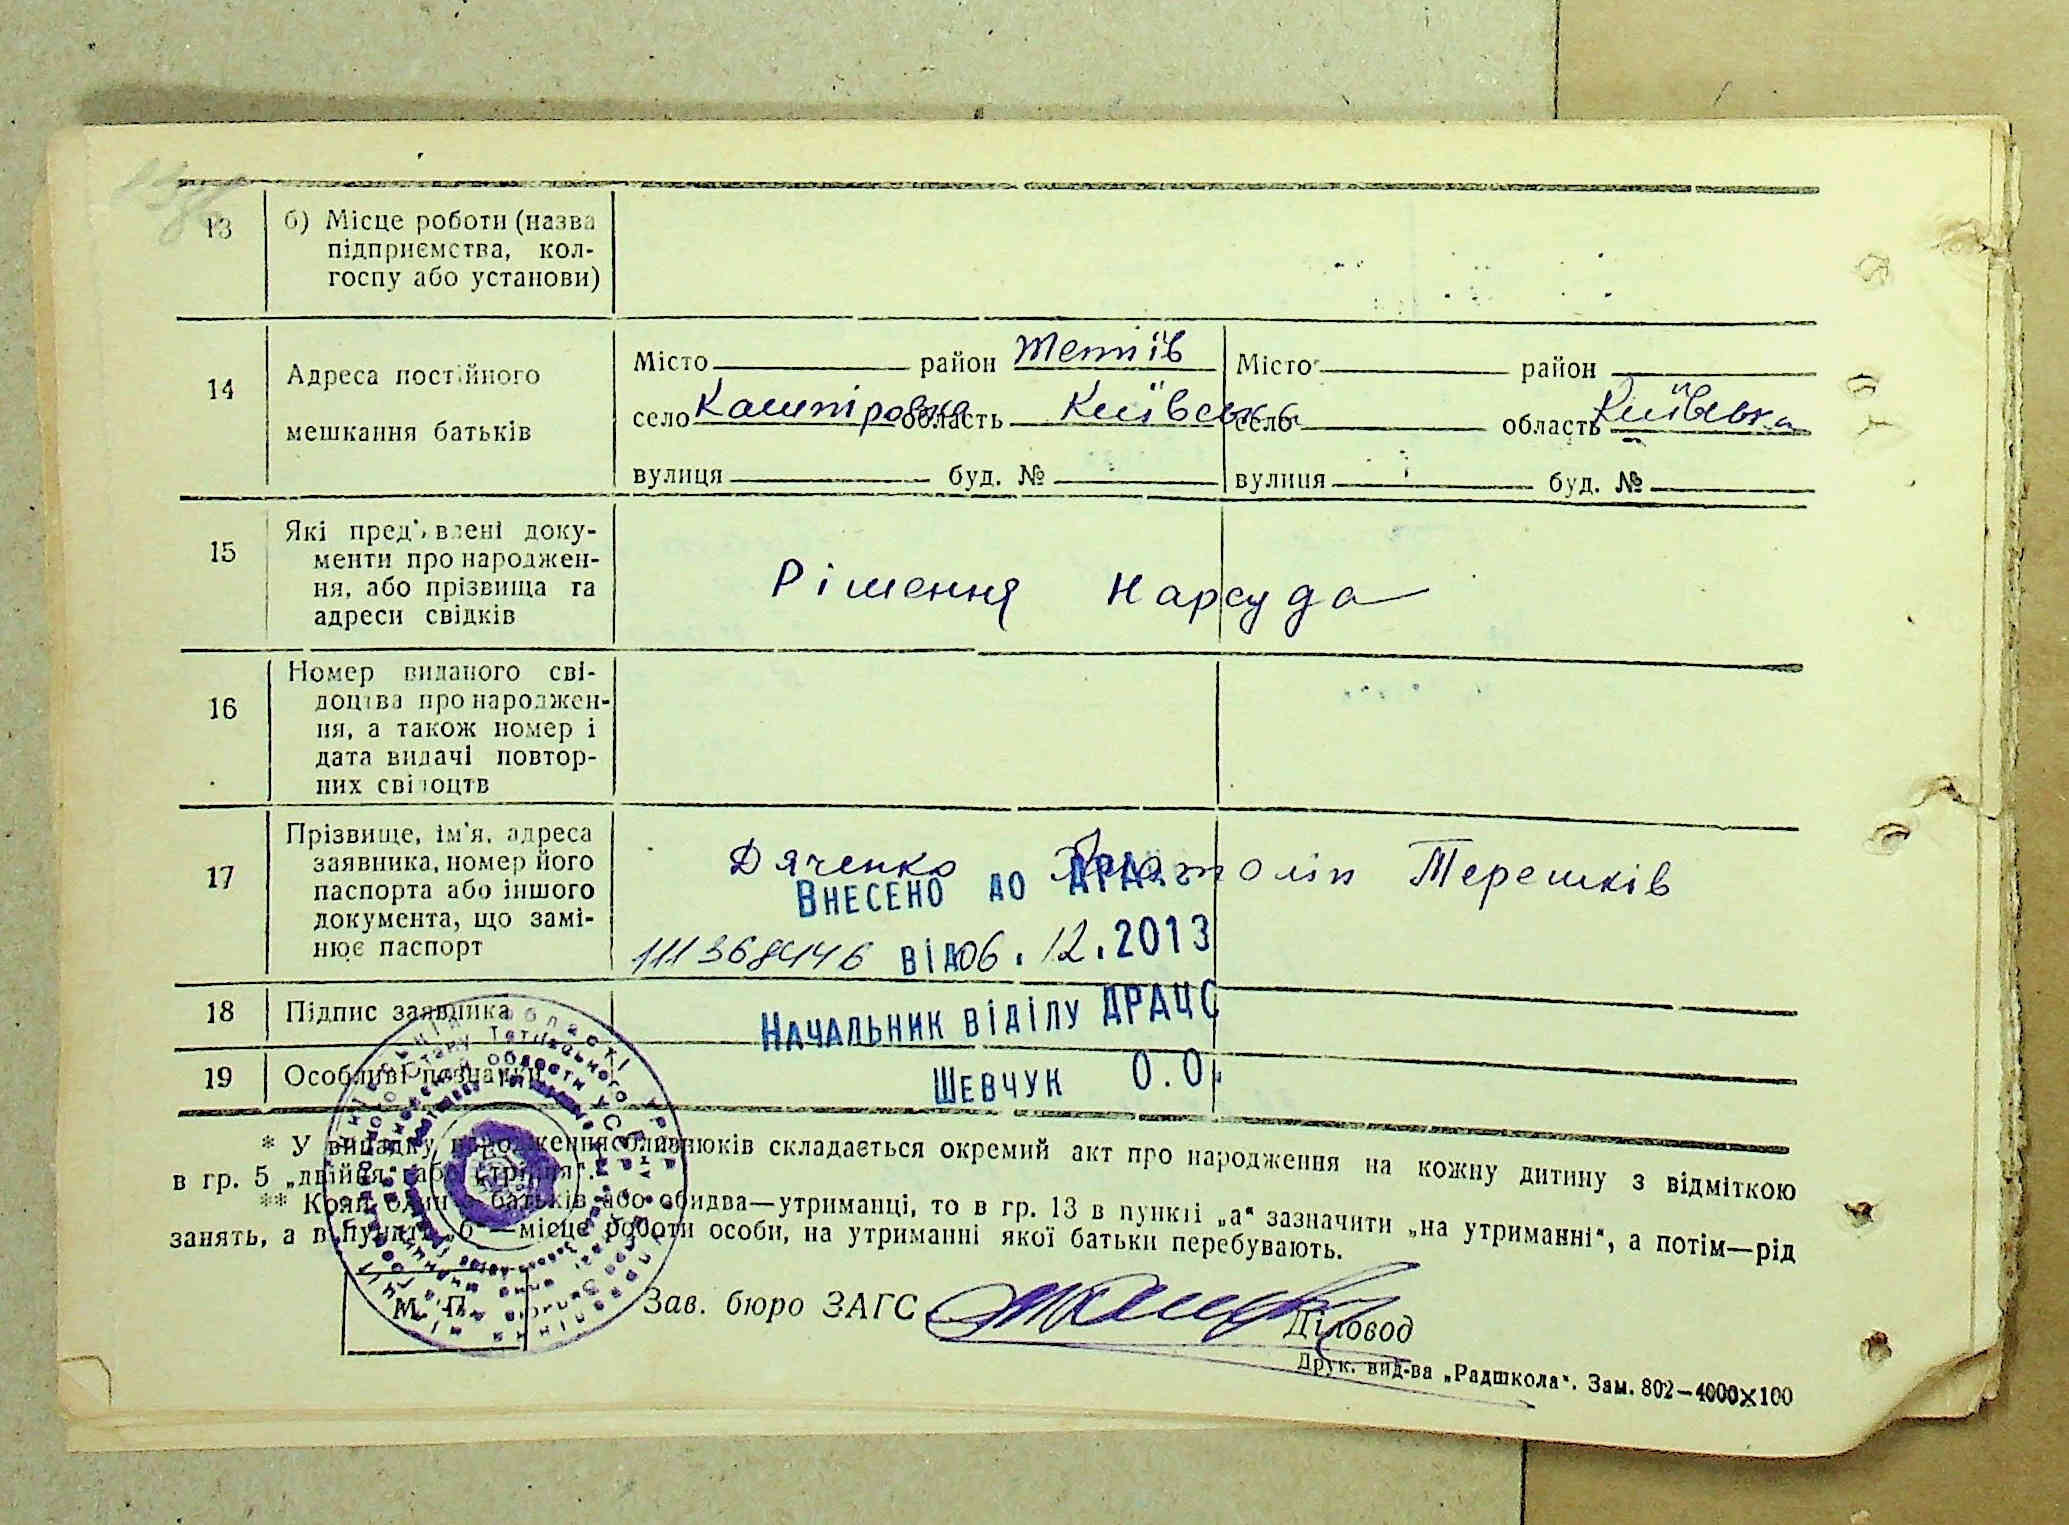 13
б) Місце роботи (назва
підприємства, кол-
госпу або установи)
14
Адреса постійного
мешкання батьків
Місто район Тетіїв
село Кашпіровка область Київська
вулиця буд. №
Місто район
село область Київська
вулиця буд. №
15
Які пред'явлені доку-
менти про народжен-
ня, або прізвища та
адреси свідків
Рішення Нарсуда
16
Номер виданого сві-
доцтва про народжен-
ня, а також номер і
дата видачі повтор-
них свідоцтв
17
Прізвище, ім'я, адреса
заявника, номер його
паспорта або іншого
документа, що замі-
нює паспорт
Дяченко Терешків
Внесено до ДРАЦС
111368446 від 06.12.2013
18
Підпис заявника
Начальник відділу ДРАЦС
19
Особливі познаки
Шевчук О.О.
* У випадку народження близнюків складається окремий акт про народження на кожну дитину з відміткою
в гр. 5 „двійня" або „трійня".
** Коли один з батьків або обидва—утриманці, то в гр. 13 в пункті „а" зазначити „на утриманні", а потім—рід
занять, а в пункті „б"—місце роботи особи, на утриманні якої батьки перебувають.
М. П.
Зав. бюро ЗАГС
Діловод
Друк. вид-ва „Радшкола". Зам. 802—4000×100